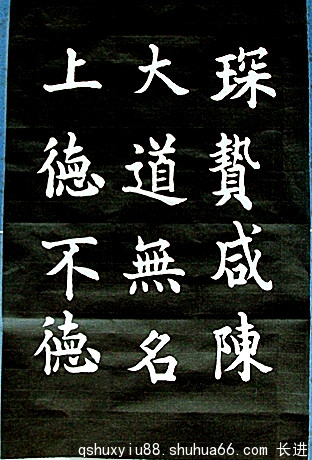 琛贄咸陳
大道無名
上德不德
qshuxyiu88.shuhua66.com 长进